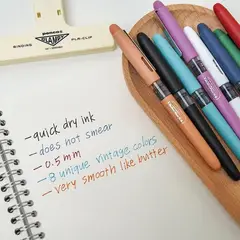 BINDING PLA-CLIP
PENCO
- quick dry ink
- does not smear
- 0.5mm
- 8 unique vintage colors
- very smooth like butter